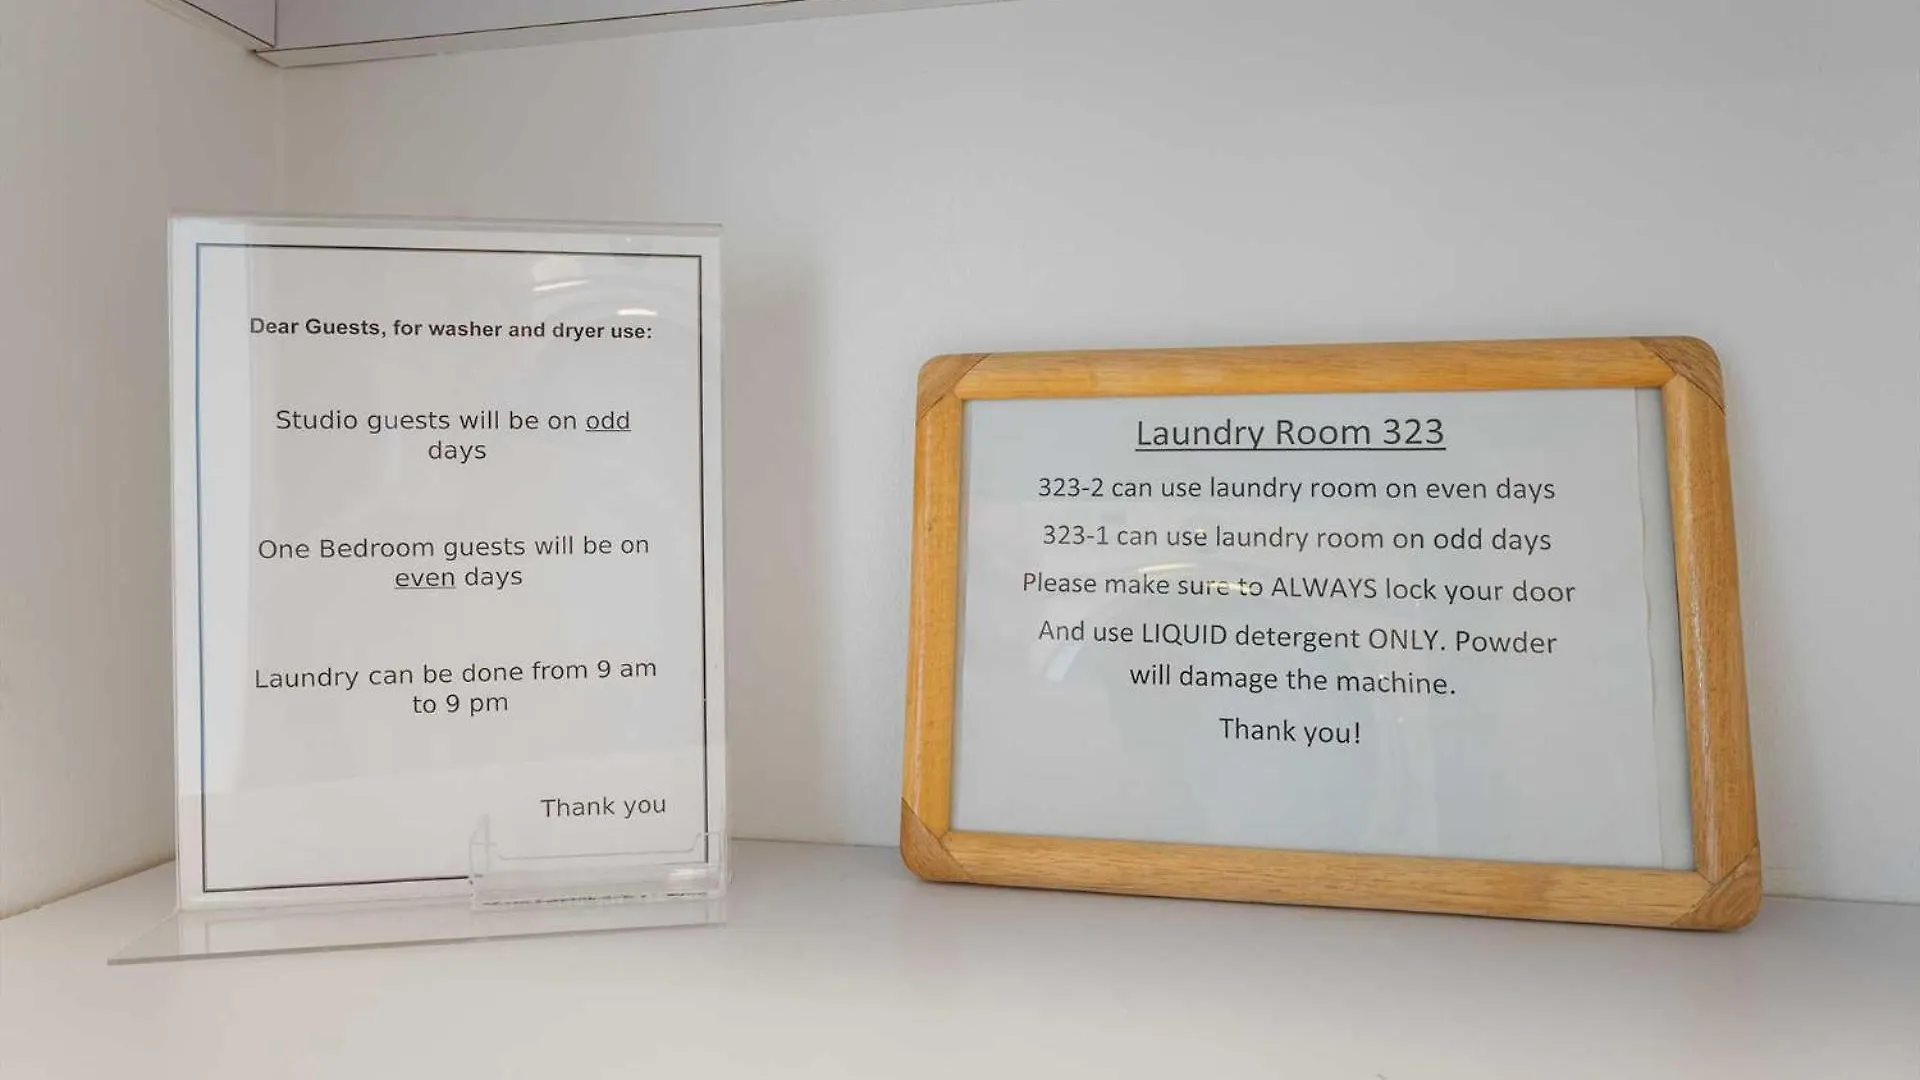 Dear Guests, for washer and dryer use:
Studio guests will be on odd
days
One Bedroom guests will be on
even days
Laundry can be done from 9 am
to 9 pm
Thank you
Laundry Room 323
323-2 can use laundry room on even days
323-1 can use laundry room on odd days
Please make sure to ALWAYS lock your door
And use LIQUID detergent ONLY. Powder
will damage the machine.
Thank you!